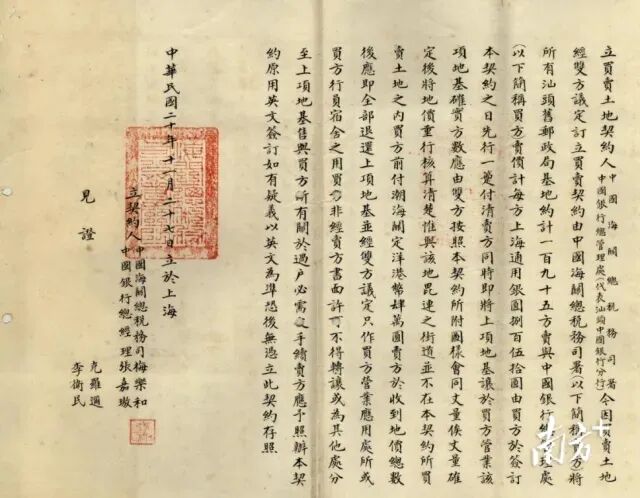 立買賣土地契約人中國海關總稅務司署中國銀行總管理處(代表汕頭中國銀行分行)今因買賣土地
經雙方議定訂立買賣契約由中國海關總稅務司署(以下簡稱賣方)將
所有汕頭舊郵政局基地約計一百九十五方賣與中國銀行總管理處
(以下簡稱買方)賣價計每方上海通用銀圓捌百伍拾圓由買方於簽訂
本契約之日先行一筆付清賣方同時即將上項地基讓於買方管業該
項地基確實方數應由雙方按照本契約所附圖樣會同丈量俟丈量確
定後將地價重行核算清楚惟與該地毘連之街道並不在本契約所買
賣土地之內買方前付潮海關定洋港幣肆萬圓賣方於收到地價總數
後應即全部退還上項地基並經雙方議定只作買方營業應用處所或
買方行員宿舍之用買方非經賣方書面許可不得轉讓或為其他處分
至上項地基售與買方所有關於過戶必需之手續賣方應予照辦本契
約原用英文簽訂如有疑義以英文為準恐後無憑立此契約存照
中華民國二十年十一月二十七日立於上海
立契約人中國海關總稅務司梅樂和
中國銀行總經理張嘉璈
見證
克羅迪
李衛民
南方+